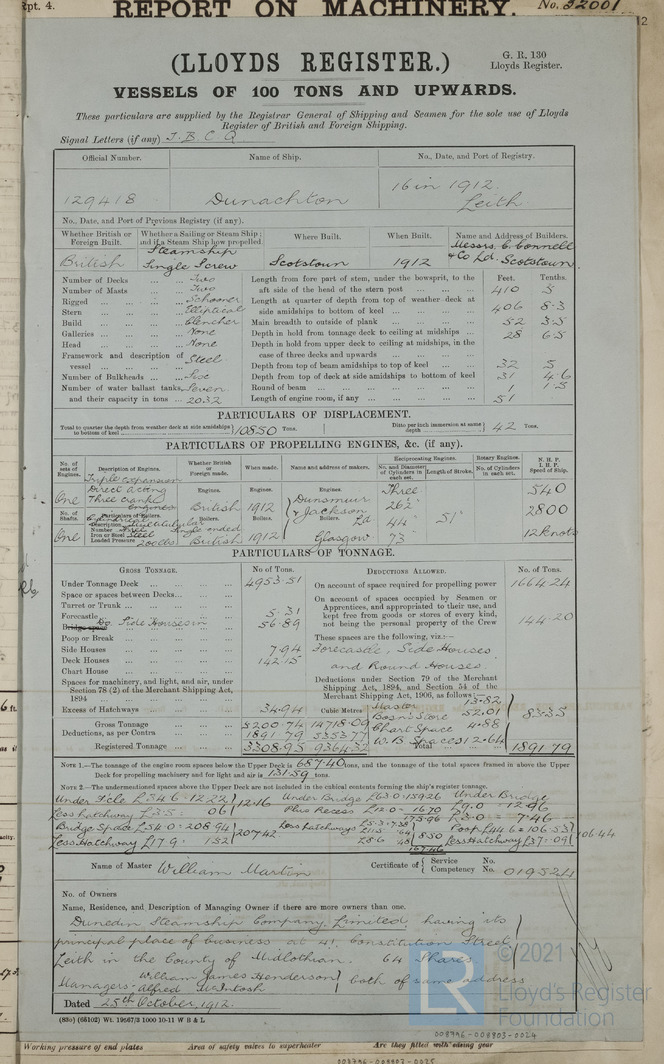 Rpt. 4.
REPORT ON MACHINERY.
No. 32001
12
(LLOYDS REGISTER.)
G. R. 130
Lloyds Register.
VESSELS OF 100 TONS AND UPWARDS.
These particulars are supplied by the Registrar General of Shipping and Seamen for the sole use of Lloyds
Register of British and Foreign Shipping.
Signal Letters (if any) J. B C Q
Official Number. Name of Ship. No., Date, and Port of Registry.
129418 Dunachton 16 in 1912. Leith.
No., Date, and Port of Previous Registry (if any).
Whether British or Foreign Built. Whether a Sailing or Steam Ship; and if a Steam Ship how propelled. Where Built. When Built. Name and Address of Builders.
British Steamship Single Screw Scotstoun 1912 Messrs. C. Connell & Co Ld. Scotstoun
Number of Decks ... Two
Number of Masts ... Two
Rigged ... Schooner
Stern ... Elliptical
Build ... Clencher
Galleries ... None
Head ... None
Framework and description of vessel ... Steel
Number of Bulkheads ... Six
Number of water ballast tanks, Seven
and their capacity in tons ... 2032
Feet. Tenths.
Length from fore part of stem, under the bowsprit, to the aft side of the head of the stern post ... 410 5
Length at quarter of depth from top of weather deck at side amidships to bottom of keel ... 406 8·3
Main breadth to outside of plank ... 52 3·5
Depth in hold from tonnage deck to ceiling at midships ... 28 6·5
Depth in hold from upper deck to ceiling at midships, in the case of three decks and upwards ...
Depth from top of beam amidships to top of keel ... 32 5
Depth from top of deck at side amidships to bottom of keel 31 4·6
Round of beam ... 1 1·5
Length of engine room, if any ... 51
PARTICULARS OF DISPLACEMENT.
Total to quarter the depth from weather deck at side amidships to bottom of keel 10850 Tons. Ditto per inch immersion at same depth 42 Tons.
PARTICULARS OF PROPELLING ENGINES, &c. (if any).
No. of sets of Engines. Description of Engines. Whether British or Foreign made. When made. Name and address of makers. Reciprocating Engines. Rotary Engines. N. H. P. I. H. P. Speed of Ship.
No. and Diameter of Cylinders in each set. Length of Stroke. No. of Cylinders in each set.
One Triple expansion Direct Acting Three crank engines
Engines. British Engines. 1912 Engines. Dunsmuir & Jackson Ld Glasgow
Three 26½" 44" 73" 51" 540 2800 12 knots
No. of Shafts. Particulars of Boilers. Boilers. Boilers. Boilers.
One Description Number Iron or Steel Steel Loaded Pressure 200lbs British 1912
PARTICULARS OF TONNAGE.
GROSS TONNAGE. No. of Tons.
Under Tonnage Deck ... 4953·51
Space or spaces between Decks ...
Turret or Trunk ...
Forecastle ... 5·31
Bridge space Do. Side Houses in ... 56·89
Poop or Break ...
Side Houses ... 7·94
Deck Houses ... 142·15
Chart House ...
Spaces for machinery, and light, and air, under Section 78 (2) of the Merchant Shipping Act, 1894 ...
Excess of Hatchways ... 34·94
Cubic Metres
Gross Tonnage ... 5200·74 14718·09
Deductions, as per Contra ... 1891·79 5353·77
Registered Tonnage ... 3308·95 9364·32
DEDUCTIONS ALLOWED. No. of Tons.
On account of space required for propelling power 1664·24
On account of spaces occupied by Seamen or Apprentices, and appropriated to their use, and kept free from goods or stores of every kind, not being the personal property of the Crew 144·20
These spaces are the following, viz.:—
Forecastle, Side Houses
and Round Houses.
Deductions under Section 79 of the Merchant Shipping Act, 1894, and Section 54 of the Merchant Shipping Act, 1906, as follows:—
Master 13·82
Bosn's Store 52·01
Chart Space 4·88
W. B. Spaces 12·64
83·35
Total 1891·79
NOTE 1.—The tonnage of the engine room spaces below the Upper Deck is 687·40 tons, and the tonnage of the total spaces framed in above the Upper Deck for propelling machinery and for light and air is 131·59 tons.
NOTE 2.—The undermentioned spaces above the Upper Deck are not included in the cubical contents forming the ship's register tonnage.
Under Fcle L34·6 = 12·22
Less hatchway L3·5 : 06
12·16
Bridge Space L54·0 = 208·94
Less Hatchway L17·9 : 1·52
207·42
Under Bridge L63·0 = 159·26
Plus Recess L12·0 - 16·70
175·96
Less Hatchways L5·3 = 7·38
L11·5 ·64
L8·6 48
8·50
167·46
Under Bridge L9·0 = 12·96
L3·0 = 7·46
Poop L44·6 = 106·53
Less Hatchway L3·7 = ·09
106·44
Name of Master William Martin
Certificate of Service No. Competency No. 019524
No. of Owners
Name, Residence, and Description of Managing Owner if there are more owners than one.
Dunedin Steamship Company, Limited having its
principal place of business at 41 Constitution Street
Leith in the County of Midlothian. 64 Shares
Managers - William James Henderson
Alfred McIntosh
both of same address
Dated 25th October, 1912.
(830) (65102) Wt. 19567/2 1000 10-11 W B & L
© 2021
LR
Lloyd's Register
Foundation
008796-008803-0024
Working pressure of end plates Area of safety valves to superheater Are they fitted with easing gear
008796-008807-0025